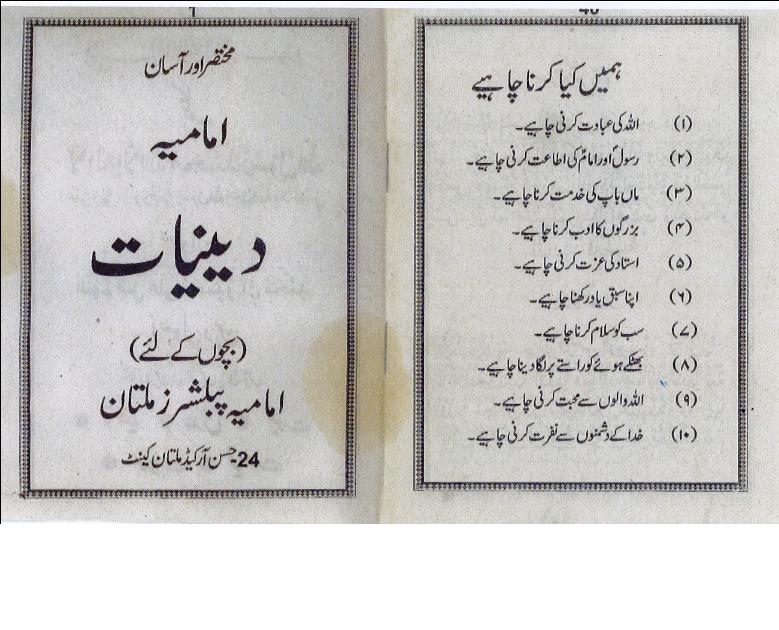 1
مختصر اور آسان
امامیہ
دینیات
(بچوں کے لئے)
امامیہ پبلشرز ملتان
24-حسن آرکیڈ ملتان کینٹ
ہمیں کیا کرنا چاہیے
(۱) اللہ کی عبادت کرنی چاہیے۔
(۲) رسولؐ اور امامؑ کی اطاعت کرنی چاہیے۔
(۳) ماں باپ کی خدمت کرنا چاہیے۔
(۴) بزرگوں کا ادب کرنا چاہیے۔
(۵) استاد کی عزت کرنی چاہیے۔
(۶) اپنا سبق یاد رکھنا چاہیے۔
(۷) سب کو سلام کرنا چاہیے۔
(۸) بھٹکے ہوئے کو راستے پر لگا دینا چاہیے۔
(۹) اللہ والوں سے محبت کرنی چاہیے۔
(۱۰) خدا کے دشمنوں سے نفرت کرنی چاہیے۔